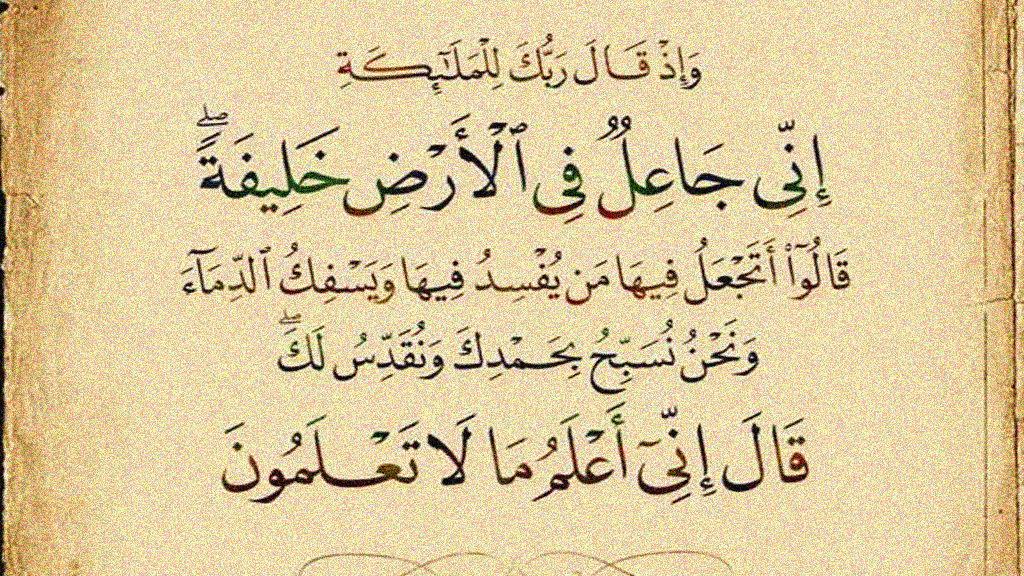 وَإِذْ قَالَ رَبُّكَ لِلْمَلَٰٓئِكَةِ
إِنِّى جَاعِلٌ فِى ٱلْأَرْضِ خَلِيفَةًۖ
قَالُوٓا۟ أَتَجْعَلُ فِيهَا مَن يُفْسِدُ فِيهَا وَيَسْفِكُ ٱلدِّمَآءَ
وَنَحْنُ نُسَبِّحُ بِحَمْدِكَ وَنُقَدِّسُ لَكَۖ
قَالَ إِنِّىٓ أَعْلَمُ مَا لَا تَعْلَمُونَ